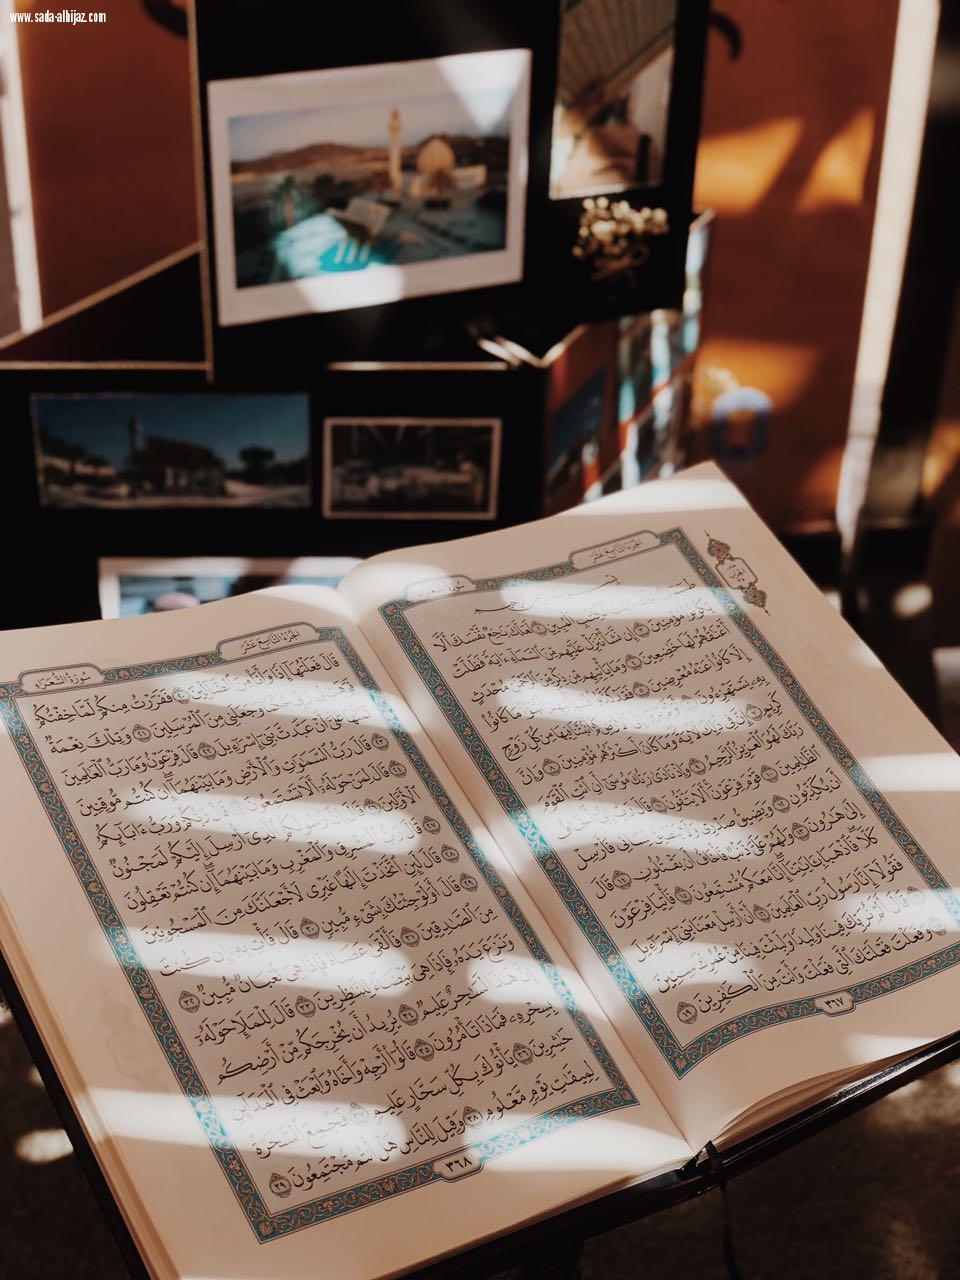 www.sada-alhijaz.com
الجزء التاسع عشر
سورة الشعراء
بسم الله الرحمن الرحيم
طسٓمٓ ١ تِلْكَ ءَايَٰتُ ٱلْكِتَٰبِ ٱلْمُبِينِ ٢ لَعَلَّكَ بَٰخِعٌ نَّفْسَكَ أَلَّا
يَكُونُوا۟ مُؤْمِنِينَ ٣ إِن نَّشَأْ نُنَزِّلْ عَلَيْهِم مِّنَ ٱلسَّمَآءِ ءَايَةً فَظَلَّتْ
أَعْنَٰقُهُمْ لَهَا خَٰضِعِينَ ٤ وَمَا يَأْتِيهِم مِّن ذِكْرٍ مِّنَ ٱلرَّحْمَٰنِ مُحْدَثٍ
إِلَّا كَانُوا۟ عَنْهُ مُعْرِضِينَ ٥ فَقَدْ كَذَّبُوا۟ فَسَيَأْتِيهِمْ أَنۢبَٰٓؤُا۟ مَا كَانُوا۟
بِهِۦ يَسْتَهْزِءُونَ ٦ أَوَلَمْ يَرَوْا۟ إِلَى ٱلْأَرْضِ كَمْ أَنۢبَتْنَا فِيهَا مِن كُلِّ زَوْجٍ
كَرِيمٍ ٧ إِنَّ فِى ذَٰلِكَ لَءَايَةً وَمَا كَانَ أَكْثَرُهُم مُّؤْمِنِينَ ٨ وَإِنَّ
رَبَّكَ لَهُوَ ٱلْعَزِيزُ ٱلرَّحِيمُ ٩ وَإِذْ نَادَىٰ رَبُّكَ مُوسَىٰٓ أَنِ ٱئْتِ ٱلْقَوْمَ
ٱلظَّٰلِمِينَ ١٠ قَوْمَ فِرْعَوْنَ أَلَا يَتَّقُونَ ١١ قَالَ رَبِّ إِنِّىٓ أَخَافُ
أَن يُكَذِّبُونِ ١٢ وَيَضِيقُ صَدْرِى وَلَا يَنطَلِقُ لِسَانِى فَأَرْسِلْ
إِلَىٰ هَٰرُونَ ١٣ وَلَهُمْ عَلَىَّ ذَنۢبٌ فَأَخَافُ أَن يَقْتُلُونِ ١٤ قَالَ
كَلَّا فَٱذْهَبَا بِـَٔايَٰتِنَآ إِنَّا مَعَكُم مُّسْتَمِعُونَ ١٥ فَأْتِيَا فِرْعَوْنَ
فَقُولَآ إِنَّا رَسُولُ رَبِّ ٱلْعَٰلَمِينَ ١٦ أَنْ أَرْسِلْ مَعَنَا بَنِىٓ إِسْرَٰٓءِيلَ
١٧ قَالَ أَلَمْ نُرَبِّكَ فِينَا وَلِيدًا وَلَبِثْتَ فِينَا مِنْ عُمُرِكَ سِنِينَ
١٨ وَفَعَلْتَ فَعْلَتَكَ ٱلَّتِى فَعَلْتَ وَأَنتَ مِنَ ٱلْكَٰفِرِينَ ١٩
٣٦٧
الجزء التاسع عشر
سورة الشعراء
قَالَ فَعَلْتُهَآ إِذًا وَأَنَا۠ مِنَ ٱلضَّآلِّينَ ٢٠ فَفَرَرْتُ مِنكُمْ لَمَّا خِفْتُكُمْ
فَوَهَبَ لِى رَبِّى حُكْمًا وَجَعَلَنِى مِنَ ٱلْمُرْسَلِينَ ٢١ وَتِلْكَ نِعْمَةٌ
تَمُنُّهَا عَلَىَّ أَنْ عَبَّدتَّ بَنِىٓ إِسْرَٰٓءِيلَ ٢٢ قَالَ فِرْعَوْنُ وَمَا رَبُّ ٱلْعَٰلَمِينَ
٢٣ قَالَ رَبُّ ٱلسَّمَٰوَٰتِ وَٱلْأَرْضِ وَمَا بَيْنَهُمَآ إِن كُنتُم مُّوقِنِينَ
٢٤ قَالَ لِمَنْ حَوْلَهُۥٓ أَلَا تَسْتَمِعُونَ ٢٥ قَالَ رَبُّكُمْ وَرَبُّ ءَابَآئِكُمُ
ٱلْأَوَّلِينَ ٢٦ قَالَ إِنَّ رَسُولَكُمُ ٱلَّذِىٓ أُرْسِلَ إِلَيْكُمْ لَمَجْنُونٌ
٢٧ قَالَ رَبُّ ٱلْمَشْرِقِ وَٱلْمَغْرِبِ وَمَا بَيْنَهُمَآ إِن كُنتُمْ تَعْقِلُونَ
٢٨ قَالَ لَئِنِ ٱتَّخَذْتَ إِلَٰهًا غَيْرِى لَأَجْعَلَنَّكَ مِنَ ٱلْمَسْجُونِينَ
٢٩ قَالَ أَوَلَوْ جِئْتُكَ بِشَىْءٍ مُّبِينٍ ٣٠ قَالَ فَأْتِ بِهِۦٓ إِن كُنتَ
مِنَ ٱلصَّٰدِقِينَ ٣١ فَأَلْقَىٰ عَصَاهُ فَإِذَا هِىَ ثُعْبَانٌ مُّبِينٌ ٣٢
وَنَزَعَ يَدَهُۥ فَإِذَا هِىَ بَيْضَآءُ لِلنَّٰظِرِينَ ٣٣ قَالَ لِلْمَلَإِ حَوْلَهُۥٓ
إِنَّ هَٰذَا لَسَٰحِرٌ عَلِيمٌ ٣٤ يُرِيدُ أَن يُخْرِجَكُم مِّنْ أَرْضِكُم
بِسِحْرِهِۦ فَمَاذَا تَأْمُرُونَ ٣٥ قَالُوٓا۟ أَرْجِهْ وَأَخَاهُ وَٱبْعَثْ فِى ٱلْمَدَآئِنِ
حَٰشِرِينَ ٣٦ يَأْتُوكَ بِكُلِّ سَحَّارٍ عَلِيمٍ ٣٧ فَجُمِعَ ٱلسَّحَرَةُ
لِمِيقَٰتِ يَوْمٍ مَّعْلُومٍ ٣٨ وَقِيلَ لِلنَّاسِ هَلْ أَنتُم مُّجْتَمِعُونَ ٣٩
٣٦٨